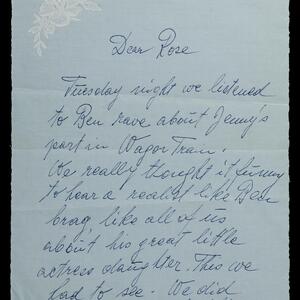 Dear Rose
Tuesday night we listened
to Ben rave about Jenny's
part in Wagon Train.
We really thought it funny
to hear a realist like Ben
brag like all of us
about his great little
actress daughter. This we
had to see. We did